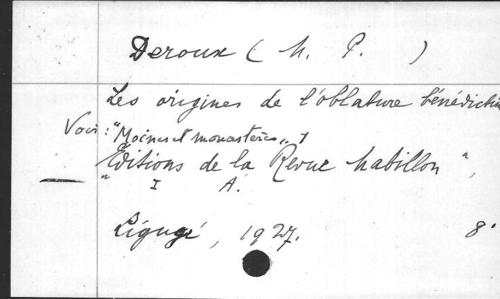 Deroux ( M. P. )
Les origines de l'oblature bénédictin
Voir : "Moines et monastères" ,
"Editions de la Revue Mabillon",
I A.
Ligugé, 1927. 8°